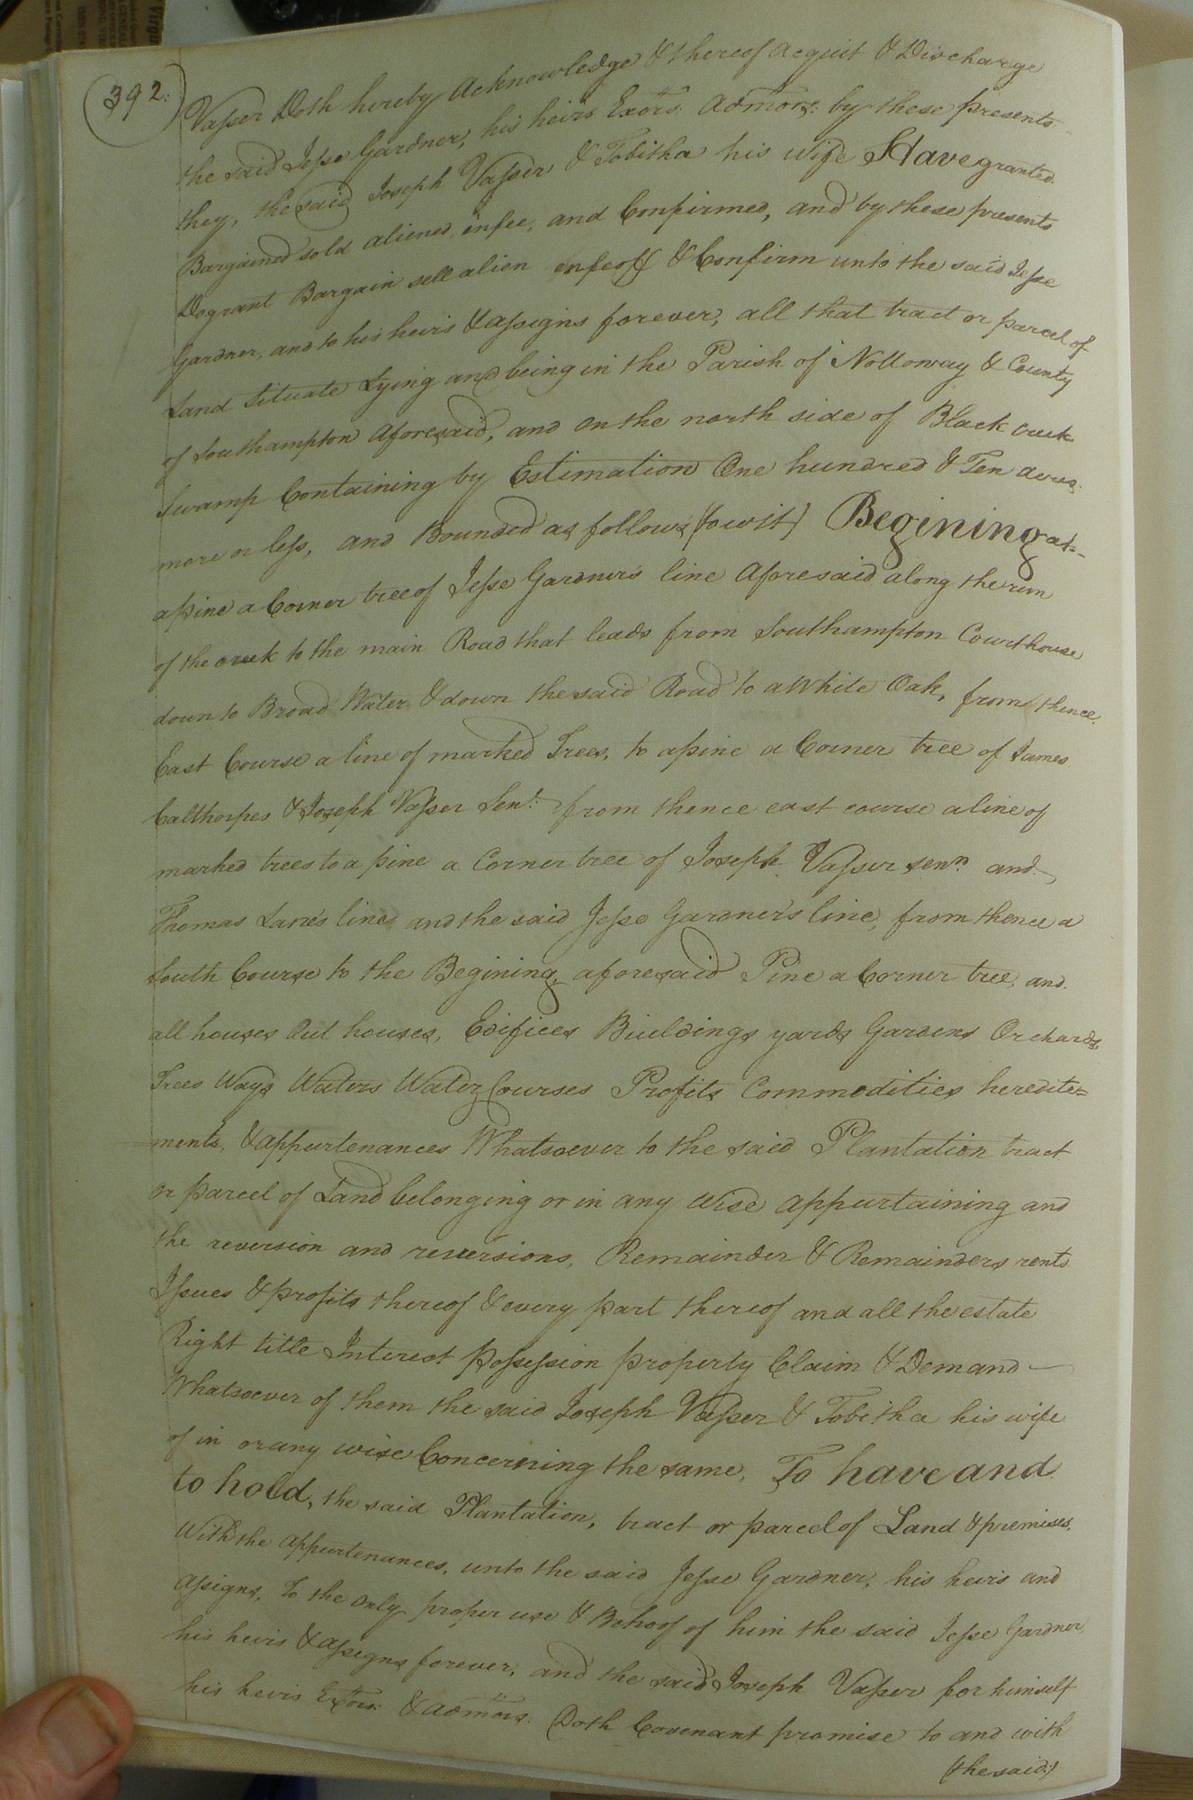 392.
Vasser Doth hereby Acknowledge & thereof acquit & Discharge
the said Jesse Gardner, his heirs Exors. admors: by these presents
they, the said Joseph Vasser & Tobitha his wife Have granted
Bargained sold aliened, enfee, and Confirmed, and by these presents
Do grant Bargain sell alien enfeoff & Confirm unto the said Jesse
Gardner, and to his heirs & assigns forever, all that tract or parcel of
Land Situate Lying and being in the Parish of Nottoway & County
of Southampton Aforesaid, and on the north side of Black creek
Swamp Containing by Estimation One hundred & Ten acres
more or less, and Bounded as follows (to wit) Begining at
a pine a Corner tree of Jesse Gardner's line Aforesaid along the run
of the creek to the main Road that leads from Southampton Courthouse
down to Broad Water & down the said Road to a White Oak, from thence
East Course a line of marked Trees, to a pine a Corner tree of James
Calthorpes & Joseph Vasser Senr: from thence east course a line of
marked trees to a pine a Corner tree of Joseph Vasser senr. and
Thomas Lane's line and the said Jesse Gardner's line, from thence a
South Course to the Begining aforesaid Pine a Corner tree, and
all houses Out houses, Edifices Buildings yards Gardens Orchards,
Trees Ways Waters Water Courses Profits Commodities heredite=
ments, & appurtenances Whatsoever to the said Plantation tract
or parcel of Land belonging or in any wise appurtaining and
the reversion and reversions, Remainder & Remainders rents
Issues & profits thereof & every part thereof and all the estate
Right title Interest possession property Claim & Demand
Whatsoever of them the said Joseph Vasser & Tobitha his wife
of in or any wise Concerning the same, To have and
to hold, the said Plantation, tract or parcel of Land & premises,
With the appurtenances, unto the said Jesse Gardner, his heirs and
assigns, To the only proper use & Behoof of him the said Jesse Gardner
his heirs & assigns forever, and the said Joseph Vasser for himself
his heirs Extors. & admors. Doth Covenant promise to and with
(the said:)